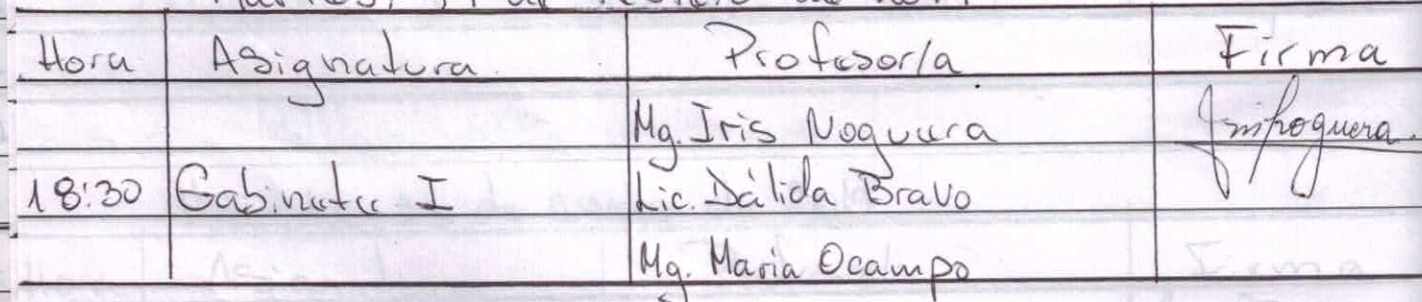 Hora Asignatura Profesor/a Firma
Mg. Iris Noguera
18:30 Gabinete I Lic. Dálida Bravo
Mg. Maria Ocampo